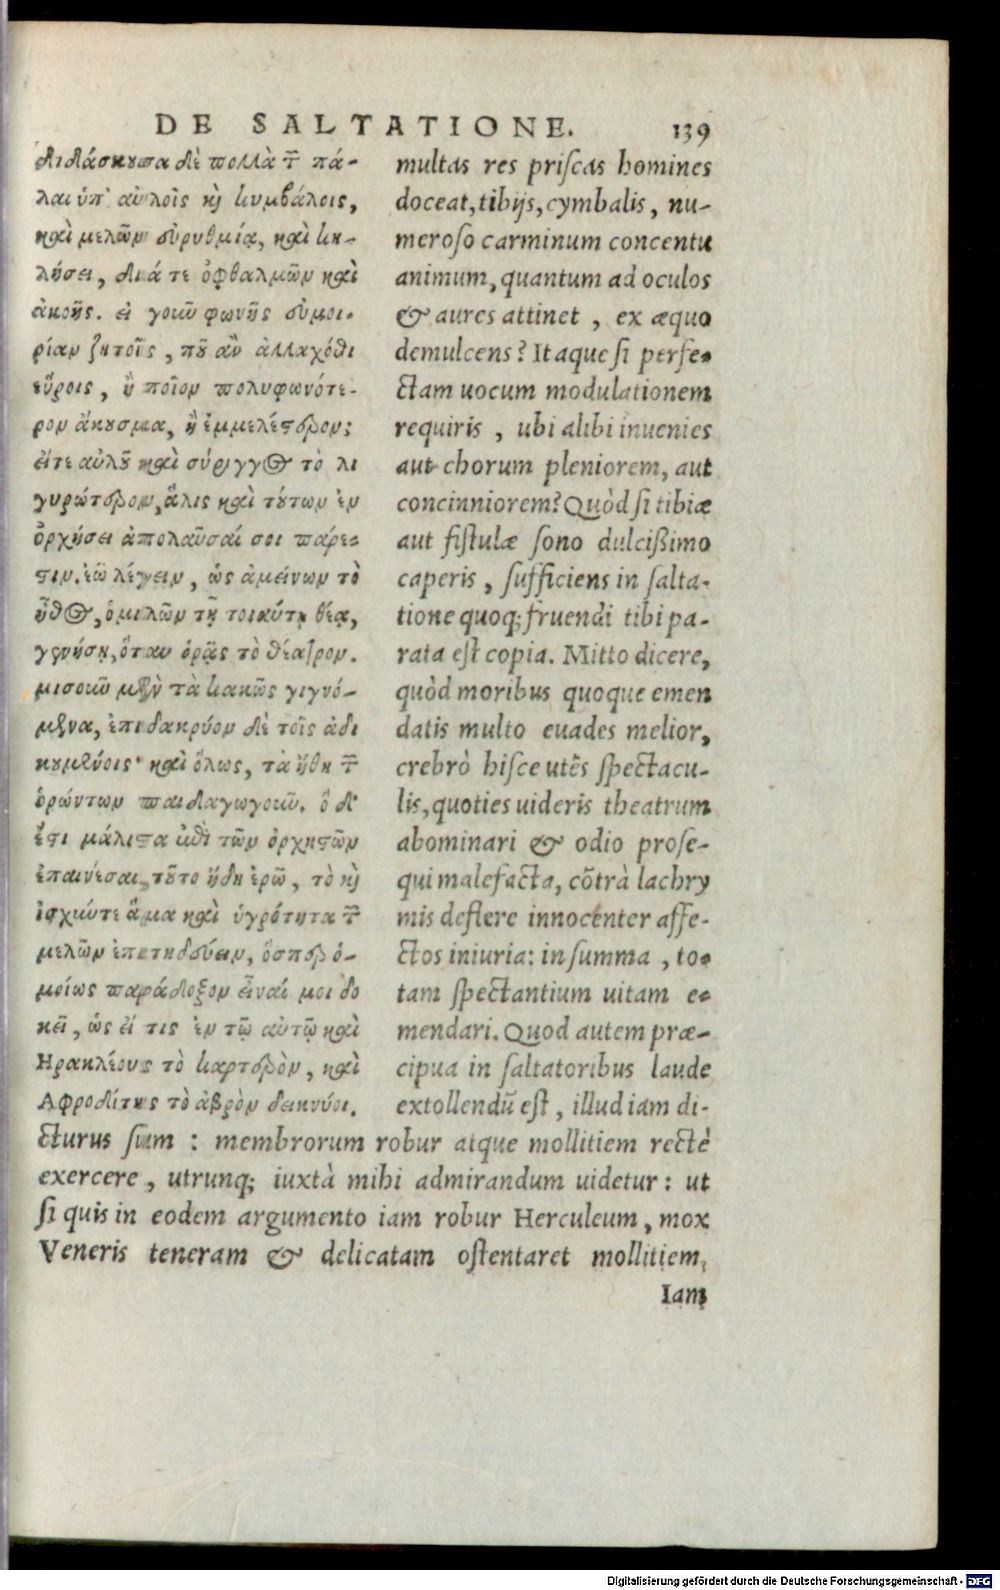 DE SALTATIONE. 139
διδάσκουσα δὲ πολλὰ τῶν πά-
λαι ὑπ' αὐλοῖς καὶ κυμβάλοις,
καὶ μελῶν εὐρυθμίᾳ, καὶ κη-
λήσει, διά τε ὀφθαλμῶν καὶ
ἀκοῆς. εἰ γοῦν φωνῆς εὐμοι-
ρίαν ζητοῖς, ποῦ ἂν ἀλλαχόθι
εὕροις, ἢ ποῖον πολυφωνότε-
ρον ἄκουσμα, ἢ ἐμμελέστερον;
εἴτε αὐλοῦ καὶ σύριγγος τὸ λι
γυρώτερον, ἅλις καὶ τούτων ἐν
ὀρχήσει ἀπολαῦσαί σοι πάρε-
στιν. ἐῶ λέγειν, ὡς ἀμείνων τὸ
ἦθος, ὁμιλῶν τῇ τοιαύτῃ θέᾳ,
γενήσῃ, ὅταν ὁρᾷς τὸ θέατρον.
μισοῦν μὲν τὰ κακῶς γιγνό-
μενα, ἐπιδακρύον δὲ τοῖς ἀδι
κουμένοις· καὶ ὅλως, τὰ ἤθη τῶν
ὁρώντων παιδαγωγοῦν. ὃ δ'
ἔστι μάλιστα ἐπὶ τῶν ὀρχηστῶν
ἐπαινέσαι, τοῦτο ἤδη ἐρῶ, τὸ καὶ
ἰσχύντε ἅμα καὶ ὑγρότητα τῶν
μελῶν ἐπιτηδεύειν, ὅσπερ ὁ-
μοίως παράδοξον εἶναί μοι δο
κεῖ, ὡς εἴ τις ἐν τῷ αὐτῷ καὶ
Ἡρακλέους τὸ καρτερὸν, καὶ
Ἀφροδίτης τὸ ἁβρὸν δεικνύοι.
multas res priscas homines
doceat, tibijs, cymbalis, nu-
meroso carminum concentu
animum, quantum ad oculos
& aures attinet, ex æquo
demulcens? Itaque si perfe-
ctam uocum modulationem
requiris, ubi alibi inuenies
aut chorum pleniorem, aut
concinniorem? Quòd si tibiæ
aut fistulæ sono dulcißimo
caperis, sufficiens in salta-
tione quoq; fruendi tibi pa-
rata est copia. Mitto dicere,
quòd moribus quoque emen
datis multo euades melior,
crebrò hisce utẽs spectacu-
lis, quoties uideris theatrum
abominari & odio prose-
qui malefacta, cõtrà lachry
mis deflere innocenter affe-
ctos iniuria: in summa, to-
tam spectantium uitam e-
mendari. Quod autem præ-
cipua in saltatoribus laude
extollendũ est, illud iam di-
cturus sum : membrorum robur atque mollitiem rectè
exercere, utrunq; iuxtà mihi admirandum uidetur : ut
si quis in eodem argumento iam robur Herculeum, mox
Veneris teneram & delicatam ostentaret mollitiem,
Iam
Digitalisierung gefördert durch die Deutsche Forschungsgemeinschaft - DFG